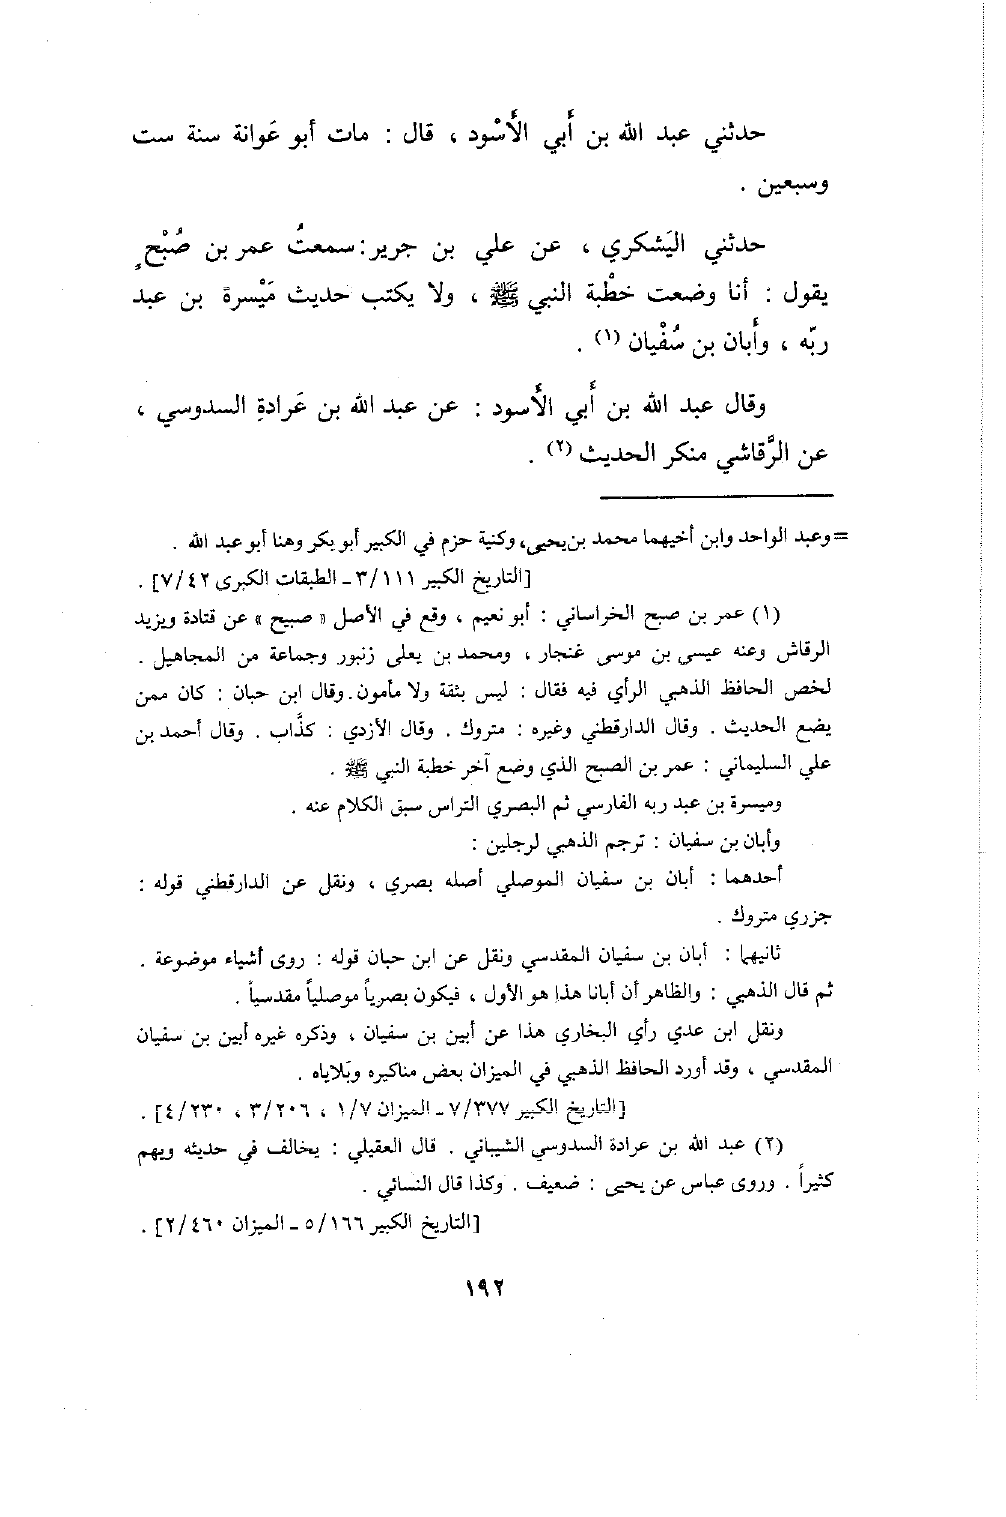 حدثني عبد الله بن أَبي الأَسْود ، قال : مات أبو عَوانة سنة ست
وسبعين .
حدثني اليَشكري ، عن علي بن جرير: سمعتُ عمر بن صُبْحٍ
يقول : أنا وضعت خطْبة النبي ﷺ ، ولا يكتب حديث مَيْسرة بن عبد
ربّه ، وأَبان بن سُفْيان (١) .
وقال عبد الله بن أَبي الأَسود : عن عبد الله بن عَرادةِ السدوسي ،
عن الرَّقاشي منكر الحديث (٢) .
=وعبد الواحد وابن أخيهما محمد بن يحيى، وكنية حزم في الكبير أبو بكر وهنا أبو عبد الله .
[التاريخ الكبير ٣/١١١ ـ الطبقات الكبرى ٧/٤٢] .
(١) عمر بن صبح الخراساني : أبو نعيم ، وقع في الأصل « صبيح » عن قتادة ويزيد
الرقاش وعنه عيسى بن موسى غنجار ، ومحمد بن يعلى زنبور وجماعة من المجاهيل .
لخص الحافظ الذهبي الرأي فيه فقال : ليس بثقة ولا مأمون . وقال ابن حبان : كان ممن
يضع الحديث . وقال الدارقطني وغيره : متروك . وقال الأزدي : كذَّاب . وقال أحمد بن
علي السليماني : عمر بن الصبح الذي وضع آخر خطبة النبي ﷺ .
وميسرة بن عبد ربه الفارسي ثم البصري التراس سبق الكلام عنه .
وأبان بن سفيان : ترجم الذهبي لرجلين :
أحدهما : أبان بن سفيان الموصلي أصله بصري ، ونقل عن الدارقطني قوله :
جزري متروك .
ثانيهما : أبان بن سفيان المقدسي ونقل عن ابن حبان قوله : روى أشياء موضوعة .
ثم قال الذهبي : والظاهر أن أبانا هذا هو الأول ، فيكون بصرياً موصلياً مقدسياً .
ونقل ابن عدي رأي البخاري هذا عن أبين بن سفيان ، وذكره غيره أبين بن سفيان
المقدسي ، وقد أورد الحافظ الذهبي في الميزان بعض مناكيره وبَلاياه .
[التاريخ الكبير ٧/٣٧٧ ـ الميزان ١/٧ ، ٣/٢٠٦ ، ٤/٢٣٠] .
(٢) عبد الله بن عرادة السدوسي الشيباني . قال العقيلي : يخالف في حديثه ويهم
كثيراً . وروى عباس عن يحيى : ضعيف . وكذا قال النسائي .
[التاريخ الكبير ٥/١٦٦ ـ الميزان ٢/٤٦٠] .
١٩٢